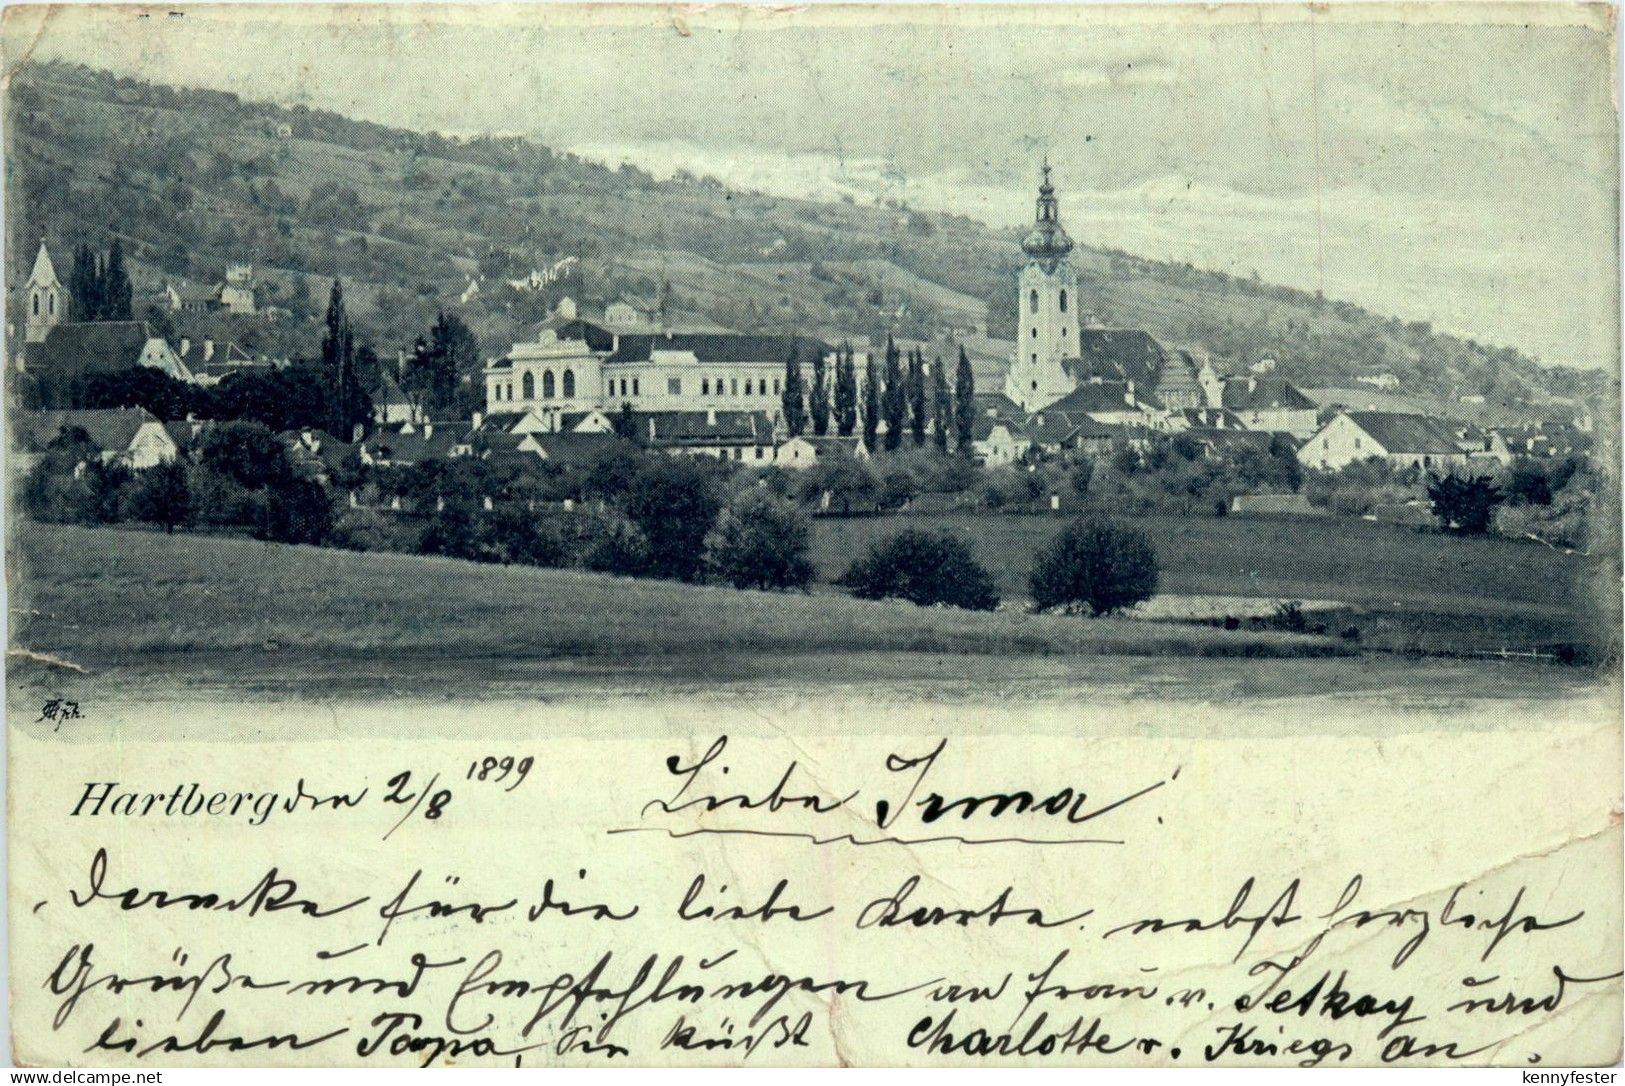 Hartberg den 2/8 1899
Liebe Irma!
Danke für die liebe Karte. nebst herzliche
Grüße und Empfehlungen an Frau v. Tetkay und
lieben Papa, Sie küßt Charlotte v. Kriegs an.
www.delcampe.net
kennyfester